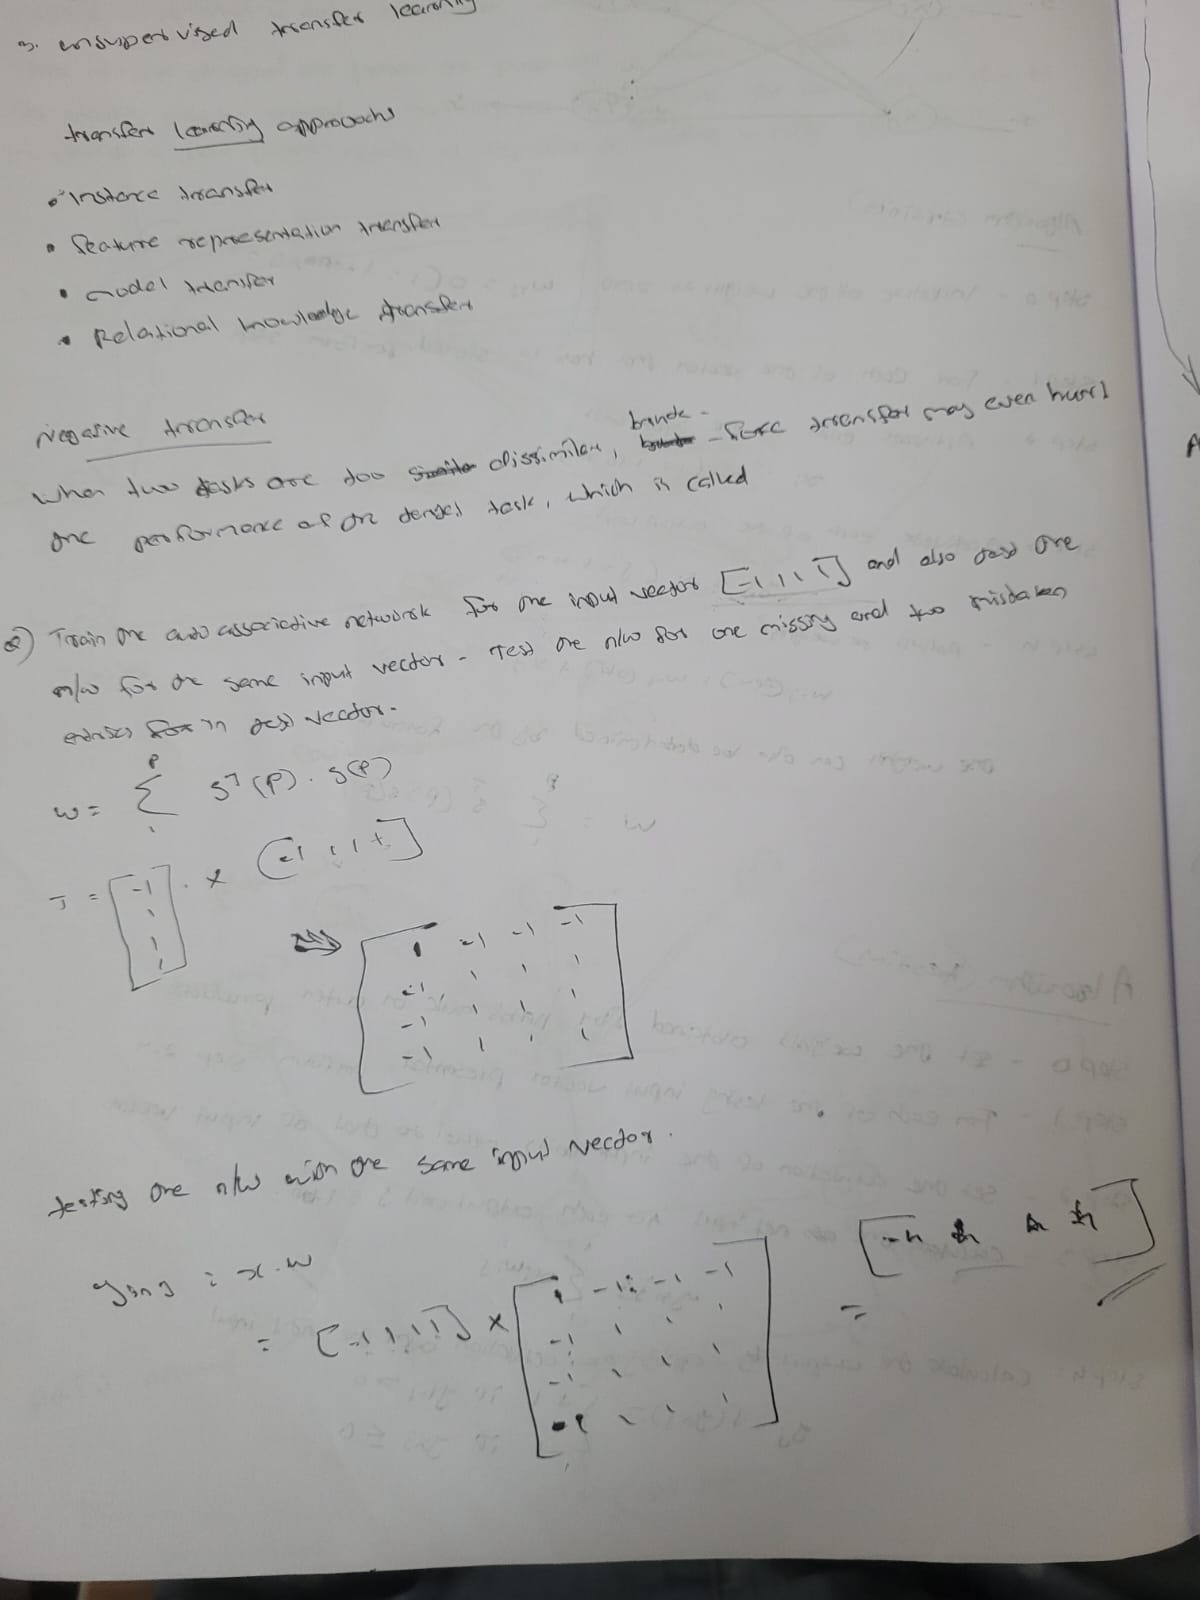 3. unsupervised transfer learning
transfer learning approachs
• Instance transfer
• feature representation transfer
• model transfer
• Relational knowledge transfer
Negative transfer
When two tasks are too dissimilar, brute - force transfer may even hurt
the performance of the target task, which is called
Q) Train the auto associative network for the input vector [-1 1 1 1] and also test the
n/w for the same input vector - Test the n/w for one missing and two mistaken
entries in test vector.
w = Σ s^T(P) . s(P)
P
1
= [-1 1 1 1] × [-1 1 1 1]
⇒ [1 -1 -1 -1
-1 1 1 1
-1 1 1 1
-1 1 1 1]
testing the n/w with the same input vector.
yinj = x . w
= [-1 1 1 1] × [1 -1 -1 -1
-1 1 1 1
-1 1 1 1
-1 1 1 1] = [-4 4 4 4]